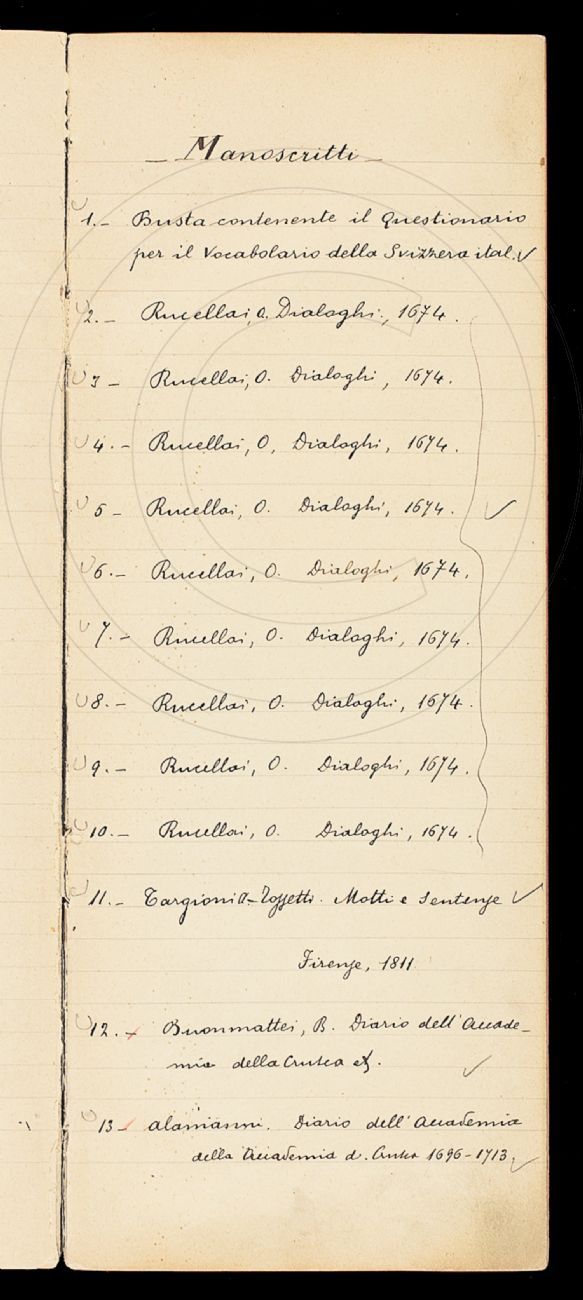 — Manoscritti —
1.- Busta contenente il Questionario
per il Vocabolario della Svizzera ital.
2.- Rucellai, O. Dialoghi, 1674.
3- Rucellai, O. Dialoghi, 1674.
4.- Rucellai, O, Dialoghi, 1674.
5- Rucellai, O. Dialoghi, 1674.
6.- Rucellai, O. Dialoghi, 1674.
7.- Rucellai, O. Dialoghi, 1674.
8.- Rucellai, O. Dialoghi, 1674.
9.- Rucellai, O. Dialoghi, 1674.
10.- Rucellai, O. Dialoghi, 1674.
11.- Targioni Tozzetti. Motti e Sentenze
Firenze, 1811
12.- Buonmattei, B. Diario dell'Accade-
mia della Crusca
13- Alamanni. Diario dell'Accademia
della Accademia d. Crusca 1696-1713